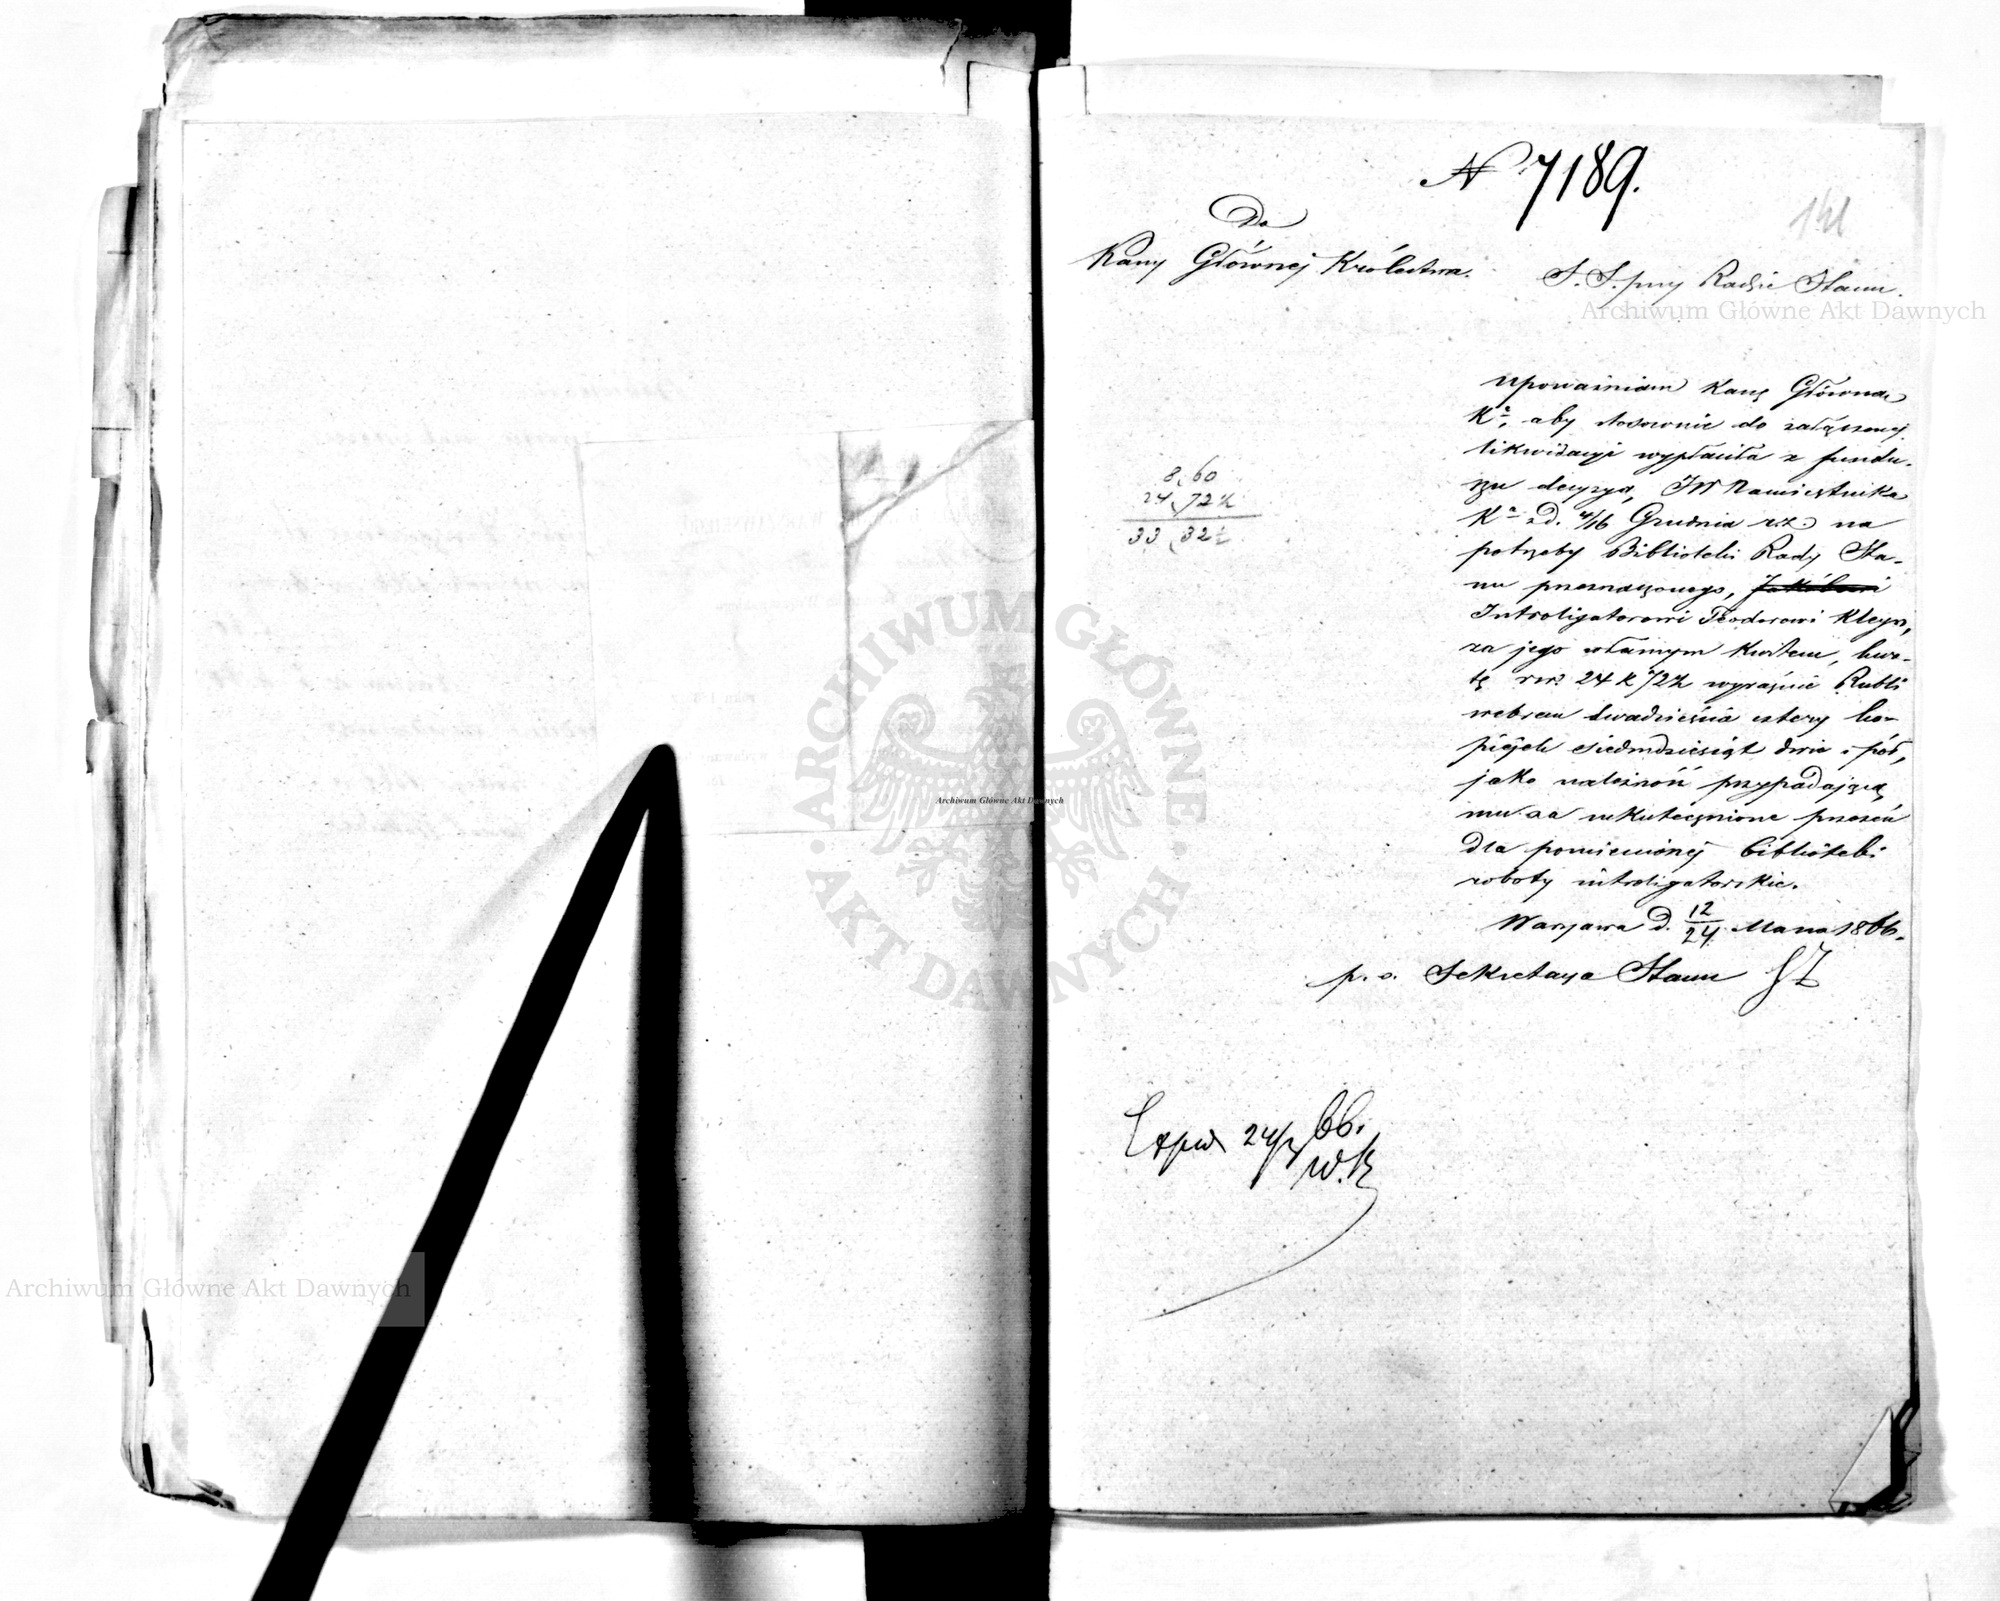 N 7189.
141
Do
Kassy Głównej Królestwa.
S. S. przy Radzie Stanu.
Archiwum Główne Akt Dawnych
Upoważniam Kassę Główną
Kª, aby stosownie do załączonej
likwidacyi wypłaciła z fundu-
szu decyzyą JW Namiestnika
Kª z d. 4/16 Grudnia r.z. na
potrzeby Biblioteki Rady Sta-
nu przeznaczonego,
Introligatorowi Teodorowi Kleyn,
za jego własnym kwitem, kwo-
tę rsr. 24 k 72½ wyraźnie Rubli
srebrem dwadzieścia cztery ko-
piejek siedmdziesiąt dwie i pół,
jako należność przypadającą
mu za uskutecznione przezeń
dla pomienionej biblioteki
roboty introligatorskie.
Warszawa d. 12/24 Marca 1866.
p. o. Sekretarza Stanu
8,60
24,72½
33,32½
24/3 66.
W.K
ARCHIWUM GŁÓWNE
AKT DAWNYCH
Archiwum Główne Akt Dawnych
Archiwum Główne Akt Dawnych